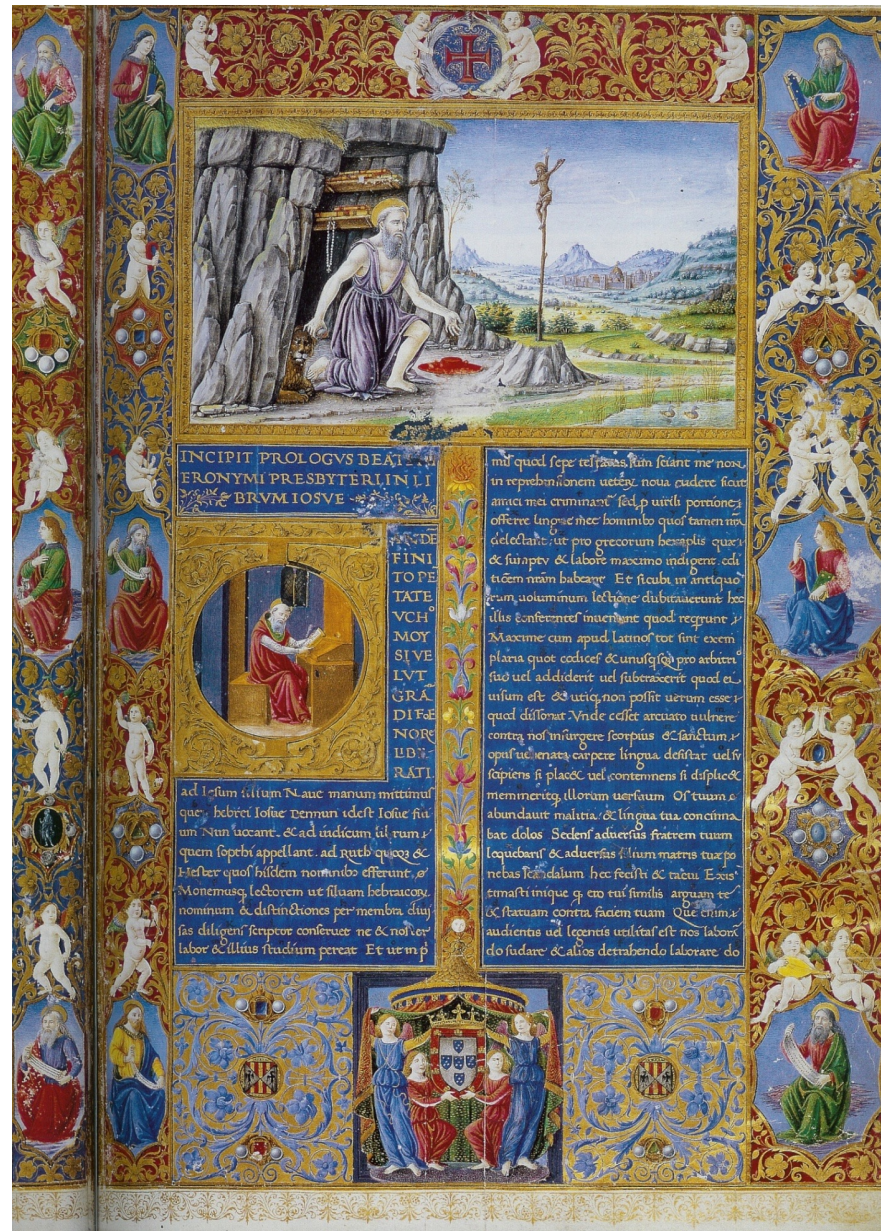 INCIPIT PROLOGVS BEATI
ERONYMI PRESBYTERI IN LI
BRVM IOSVE
DE
FINI
TO PE
TATE
VCHO
MOY
SI VE
LVT
GRA
DI FE
NORE
LIBE
RATI
ad Iesum filium Naue manum mittimus
quem hebrei Iosue Bennun idest Iosue fili
um Nun uocant. & ad iudicum librum
quem sopthi appellant. ad Ruth quoq; &
Hester quos hisdem nominibus efferunt.
Monemusq; lectorem ut siluam hebraicorum
nominum & distinctiones per membra diui
sas diligens scriptor conseruet ne & noster
labor & illius studium pereat. Et ut in p
mis quod sepe testatus sum sciant me non
in reprehensionem ueterum noua cudere sicut
amici mei criminantur sed p uirili portione
offerre lingue mee hominibus quos tamen nra
delectant. ut pro grecorum hexaplis que
& sumptu & labore maximo indigent edi
tionem nram habeant. Et sicubi in antiquo
rum uoluminum lectione dubitauerint hec
illis conferentes inueniant quod requirunt
Maxime cum apud latinos tot sint exem
plaria quot codices & unusquisq; pro arbitrio
suo uel addiderit uel subtraxerit quod ei
uisum est & utiq; non possit uerum esse
quod dissonat. Vnde cesset arcuato uulnere
contra nos insurgere scorpius & sanctum
opus uenenata carpere lingua desistat uel su
scipiens si placet uel contemnens si displicet
memineritq; illorum uersuum. Os tuum
abundauit malitia & lingua tua concinna
bat dolos Sedens aduersus fratrem tuum
loquebaris & aduersus filium matris tue po
nebas scandalum hec fecisti & tacui Exis
timasti inique q ero tui similis arguam te
& statuam contra faciem tuam Que enim
audientis uel legentis utilitas est nos labori
do sudare & alios detrahendo laborare do